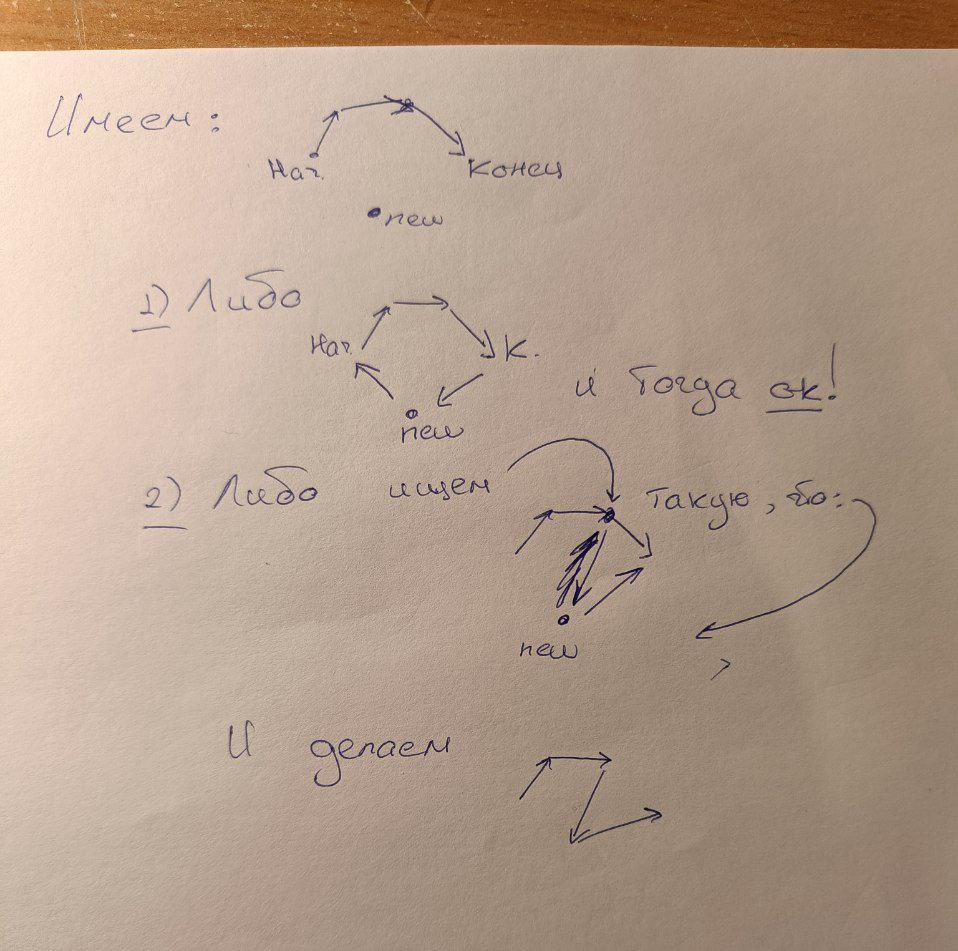 Имеем:
Нач. Конец
new
1) Либо
Нач. К.
и тогда ок!
new
2) Либо ищем такую, что:
new
И делаем